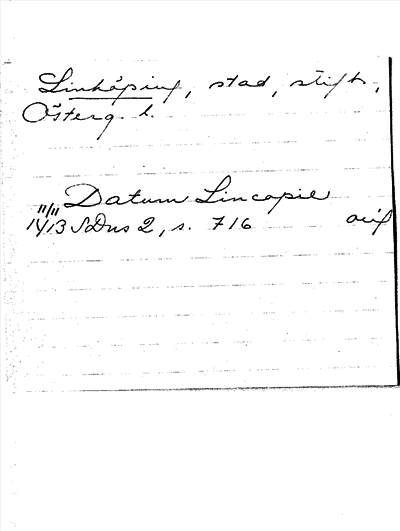 Linköping, stad, stift,
Österg. l.
Datum Lincopie
11/11 1413 SDns 2, s. 716 orig